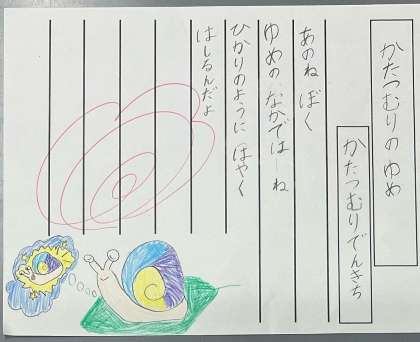 かたつむりのゆめ
かたつむりでんきち
あのね ぼく
ゆめの なかでは ーね
ひかりのように はやく
はしるんだよ